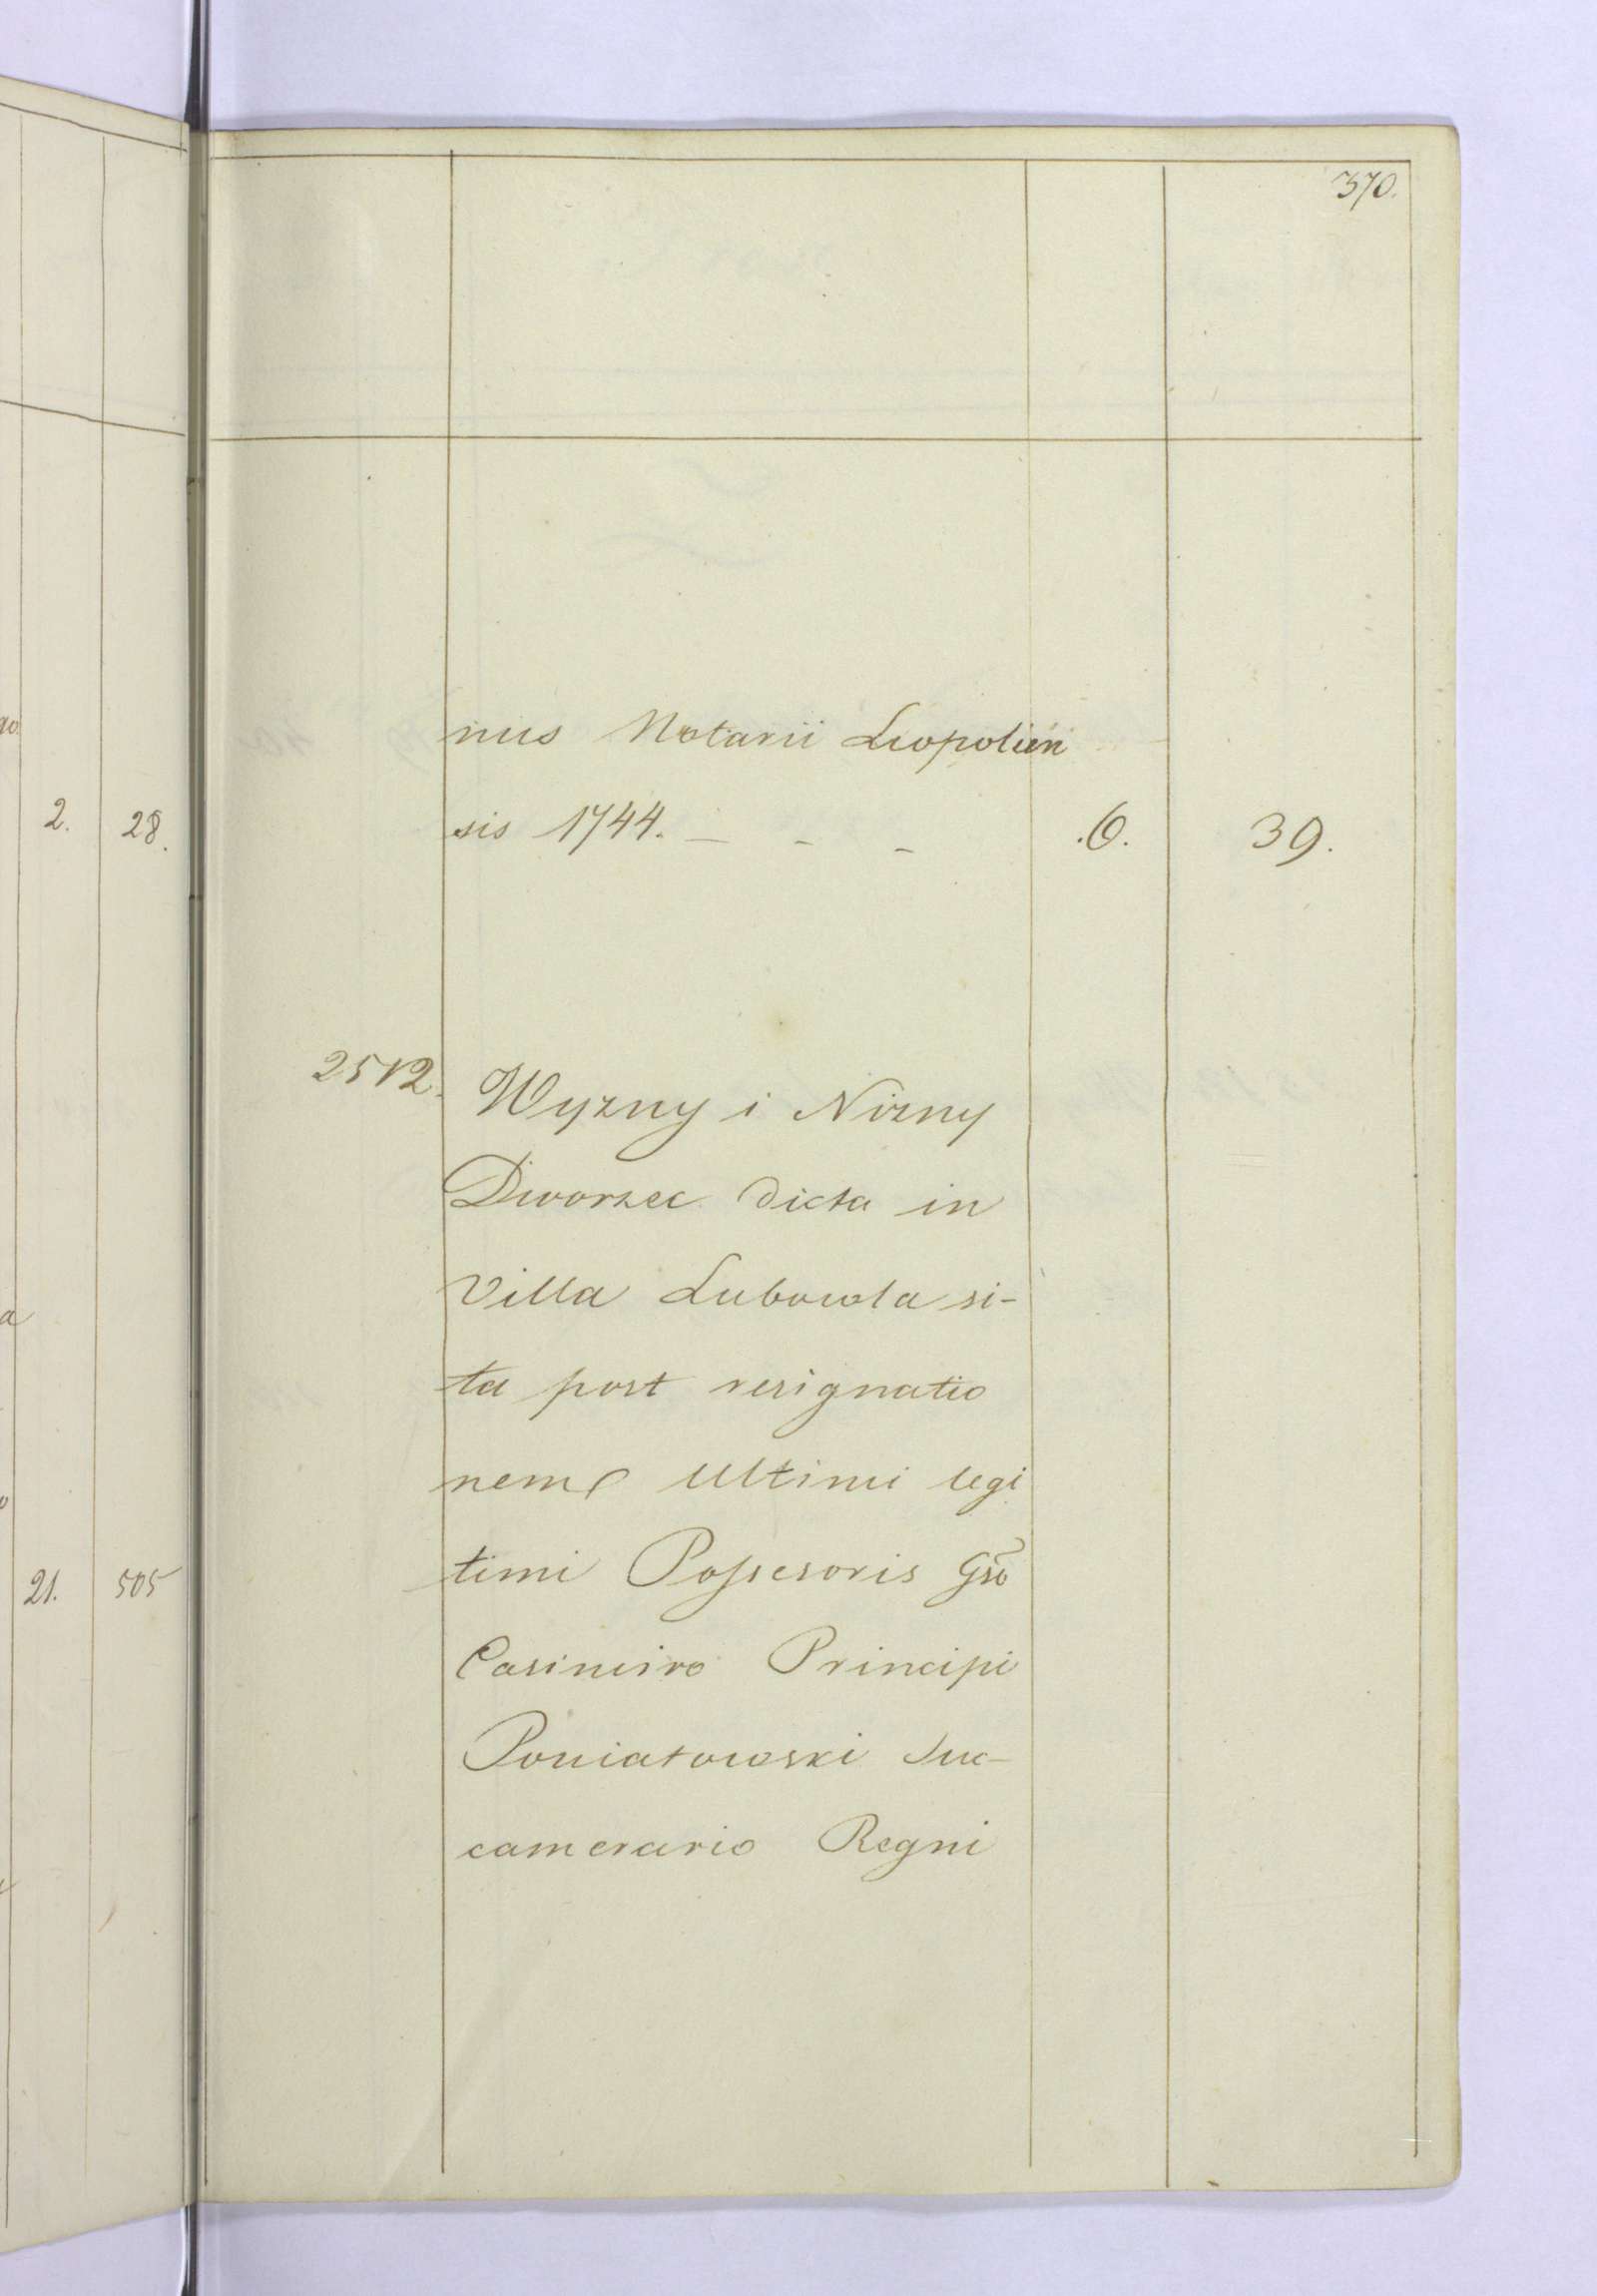 370.
nus Notarii Leopolien
sis 1744. - - - .6. 39.
2. 28.
2512. Wyzny i Nizny
Dworzec dicta in
Villa Lubowla si-
ta post resignatio
nem Ultimi legi
timi Possesoris Gso
21. 505
Casimiro Principi
Poniatowski Suc-
camerario Regni